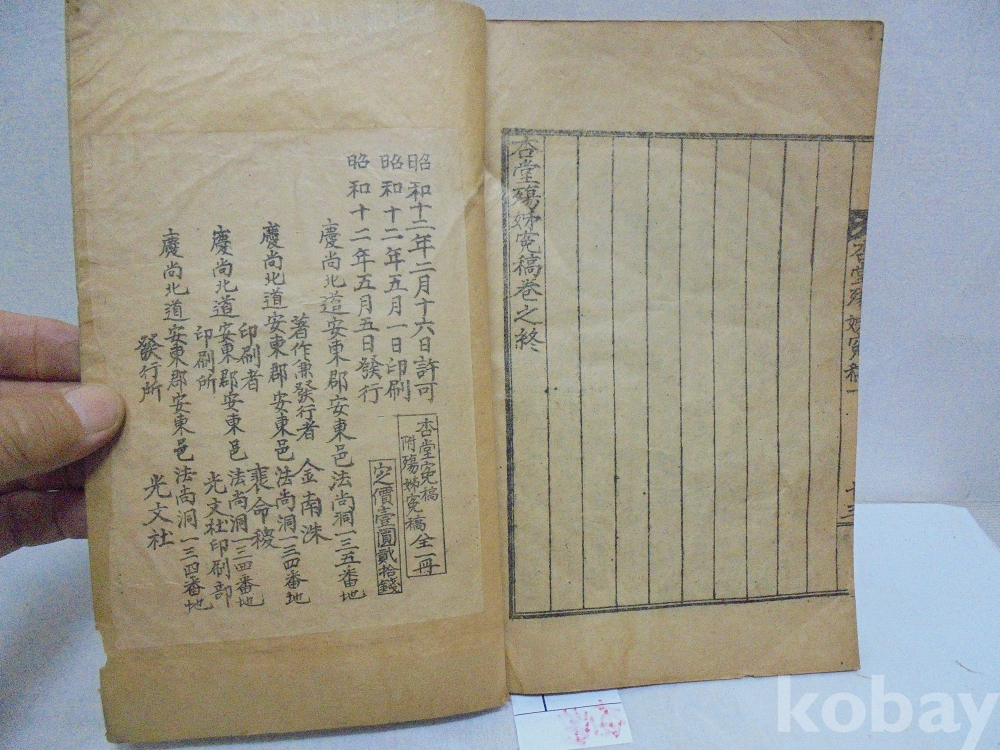 杏堂殤姊寃稿卷之終
昭和十二年二月十六日許可
昭和十二年五月一日印刷
昭和十二年五月五日發行
杏堂寃稿
附殤姊寃稿
全一冊
定價壹圓貳拾錢
慶尚北道安東郡安東邑法尚洞一三五番地
著作兼發行者 金南洙
慶尚北道安東郡安東邑法尚洞一三四番地
印刷者 裵命稷
慶尚北道安東郡安東邑法尚洞一三四番地
印刷所 光文社印刷部
慶尚北道安東郡安東邑法尚洞一三四番地
發行所 光文社
kobay